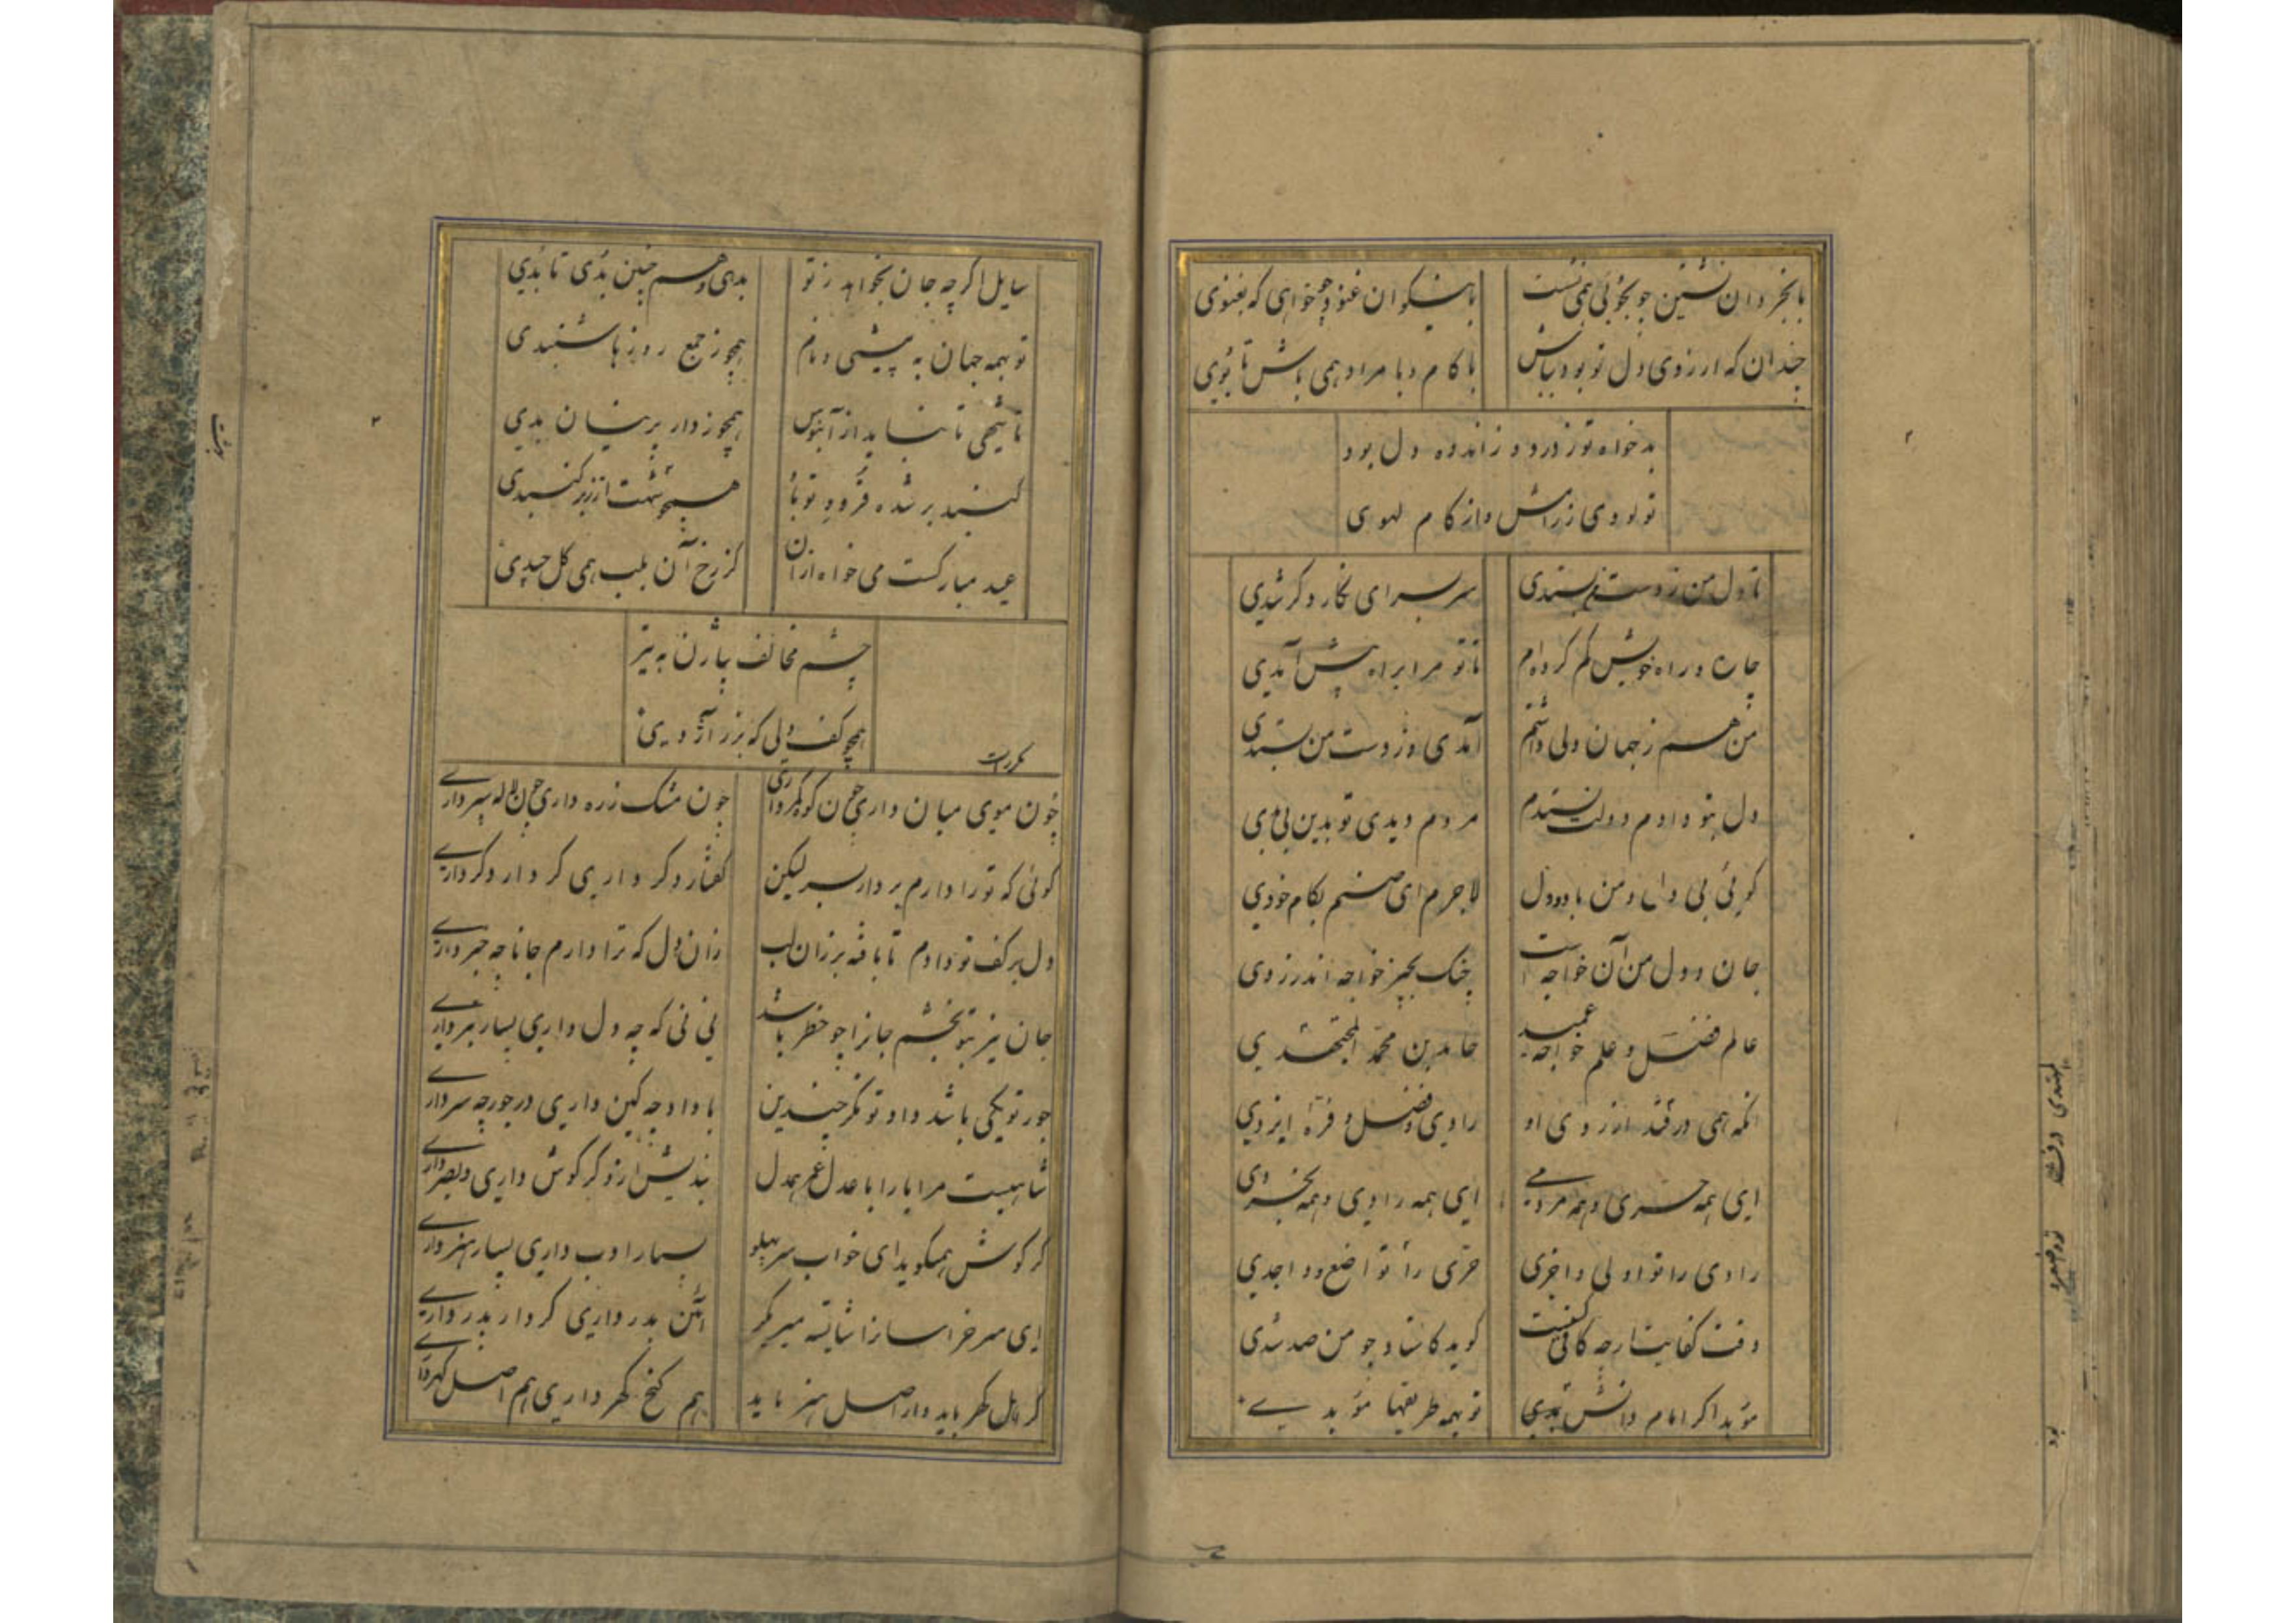 با بخردان نشین چو بجوئی همی نشست
با نیکوان غنو چو بخواهی که بغنوی
چندان که ارزوی دل تو بود بباش
با کام و با مراد همی باش تا بوی
بدخواه تو ز درد و ز اندوه دل بود
تو نوی ز رامش واز کام لهوی
تا دل من ز دست من بستدی
سر بسر ای نکار دکر شدی
جان و راه خویش کم کرده‌ام
تا تو مرا براه پیش آمدی
من هم ز جهان دلی داشتم
آمدی و ز دست من بستدی
دل بتو دادم و دلت نستدم
مردم دیدی تو بدین بی بدی
کوئی بی دل و من با دو دل
لاجرم ای صنم بکام خودی
جان و دل من آن خواجه است
چنک بچیز خواجه اندر زدی
عالم فضل و علم خواجه عمید
حامد بن محمد المجتهدی
انکه همی درفتد از روی او
رادی و فضل و فره ایزدی
ای همه حری و همه مردمی
ای همه رادی و همه بخردی
رادی را تو اول و اخری
حری را تو اضع و واجدی
وقت کفایت ار چه کافیست
کوید کاشاد چو من صد شدی
مؤبد اکر امام دانش بدی
تو بهمه طریقها مؤبدی
سایل اکر چه جان بخواهد ز تو
بدهی و هم چنین بدی تا بدی
تو بهمه جهان به پیشی و نام
همچو ز جمع روزها شنبدی
تا بتهی تا نساید از آبنوس
همچو ز دار پرنیان بدی
کنبد بر شده فرود تو باد
همچو تو هشت از زبر کنبدی
عید مبارکست می خواه از ان
کز رخ آن بلب همی کل چدی
چشم مخالف بیاژن به تیر
همچو کف ولی که بزر آژدی
مکررست
چون موی میان داری چون کوه کمر داری
چون مشک زره داری چون لاله سپر داری
کوئی که تو را دارم بردار سر لیکن
کفتار دکر داری کردار دکر داری
دل بر کف تو دادم تا بافه بر زان لب
زان دل که ترا دارم جانا چه خبر داری
جان نیز بتو بخشم جانرا چو خطر باشد
نی نی که چه دل داری بسیار ببر داری
جور تو یکی باشد داد تو مکر چندین
با داد چه کین داری در جور چه سر داری
شاهیست مرا یارا با عدل عمر همدل
بندیش ازو کر کوش داری و بصر داری
کر کوش همیکوید ای خواب سر پهلو
بسیار ادب داری بسیار هنر داری
ای میر خراسانرا شایسته میر مکر
آئین پدر داری کردار پدر داری
کر اهل کهر باید وار اصل هنر باید
هم کنج کهر داری هم اصل کهر داری